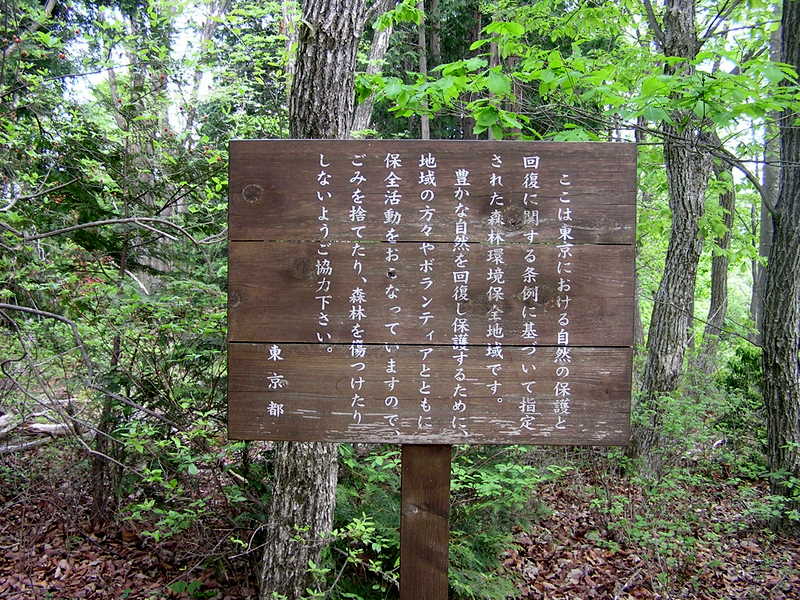 ここは東京における自然の保護と
回復に関する条例に基づいて指定
された森林環境保全地域です。
豊かな自然を回復し保護するために、
地域の方々やボランティアとともに
保全活動をおこなっていますので、
ごみを捨てたり、森林を傷つけたり
しないようご協力下さい。
東京都